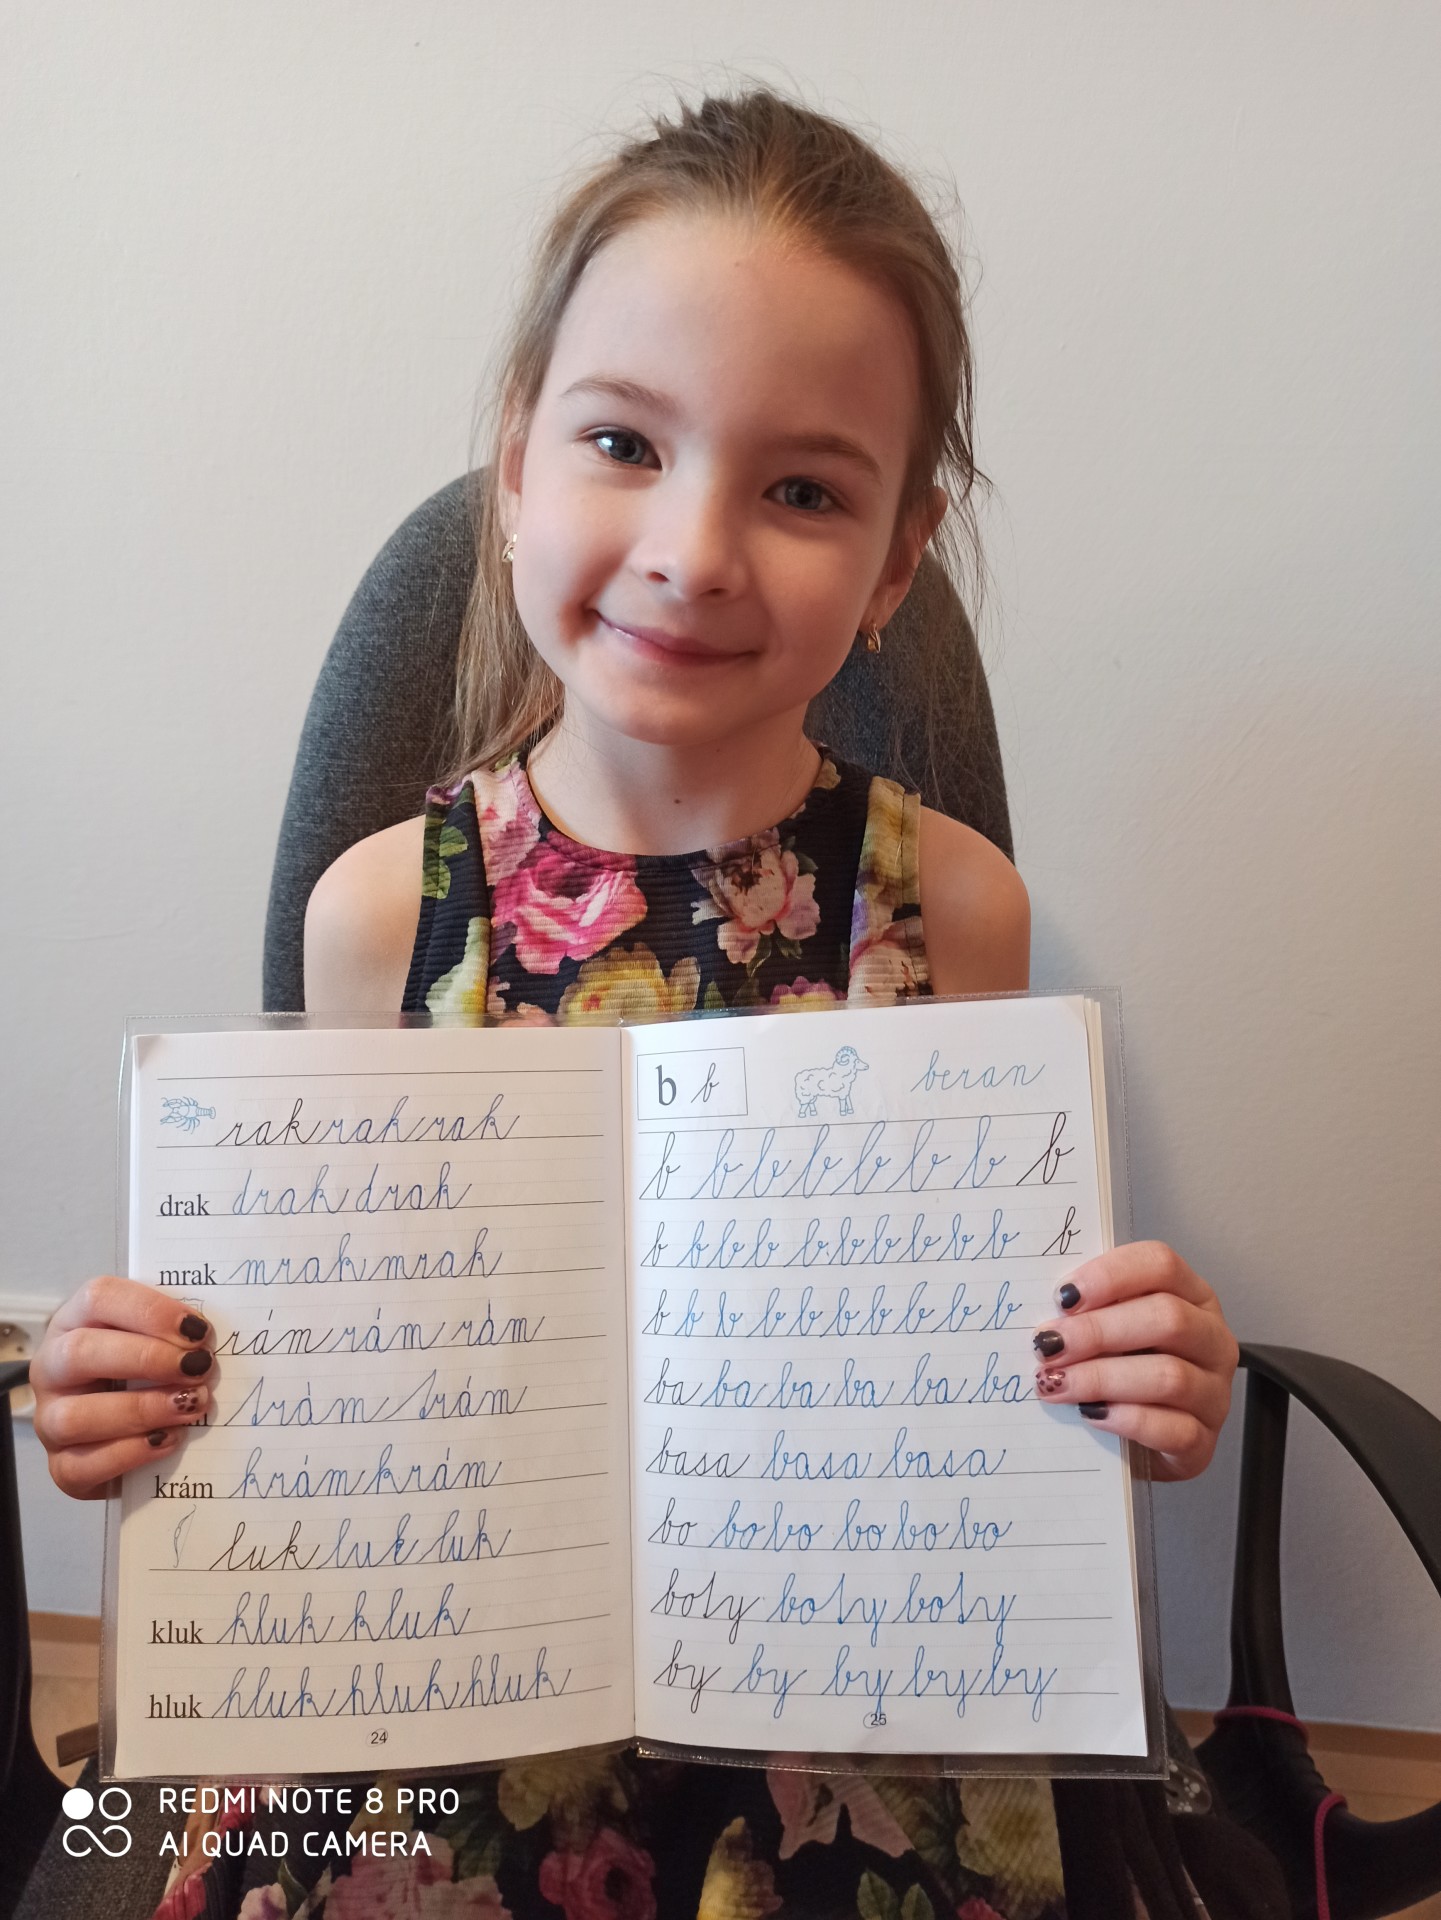 rak rak rak
drak drak drak
mrak mrak mrak
rám rám rám
trám trám
krám krám krám
luk luk luk
kluk kluk kluk
hluk hluk hluk hluk
24
b b beran
b b b b b b b b
b b b b b b b b b b b
b b b b b b b b b b
ba ba ba ba ba ba
basa basa basa
bo bo bo bo bo bo
boty boty boty
by by by by by
25
REDMI NOTE 8 PRO
AI QUAD CAMERA